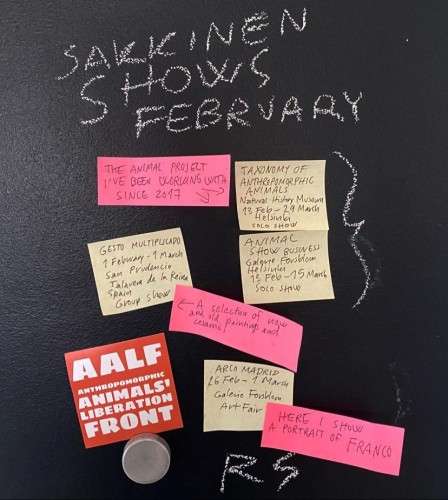 SAKKINEN
SHOWS
FEBRUARY
THE ANIMAL PROJECT
I'VE BEEN WORKING WITH
SINCE 2017
TAXONOMY OF
ANTHROPOMORPHIC
ANIMALS
Natural History Museum
13 Feb - 29 March
Helsinki
SOLO SHOW
GESTO MULTIPLICADO
1 February - 1 March
San Prudencio
Talavera de la Reina
Spain
Group show
ANIMAL
SHOW BUSINESS
Galerie Forsblom
Helsinki
13 Feb - 15 March
SOLO SHOW
← A selection of new
and old paintings and
ceramic
AALF
ANTHROPOMORPHIC
ANIMALS'
LIBERATION
FRONT
ARCO MADRID
26 Feb - 1 March
Galerie Forsblom
Art Fair
HERE I SHOW
A PORTRAIT OF FRANCO
RS